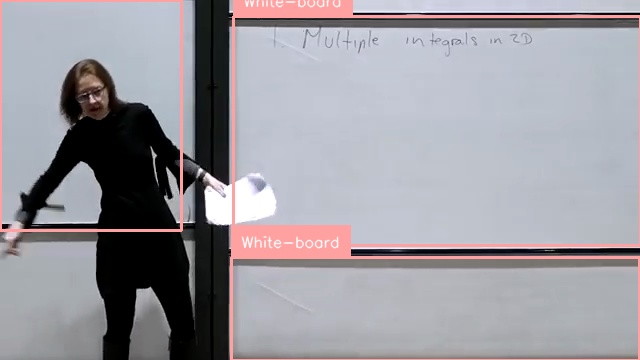 White-board
1. Multiple integrals in 2D
White-board